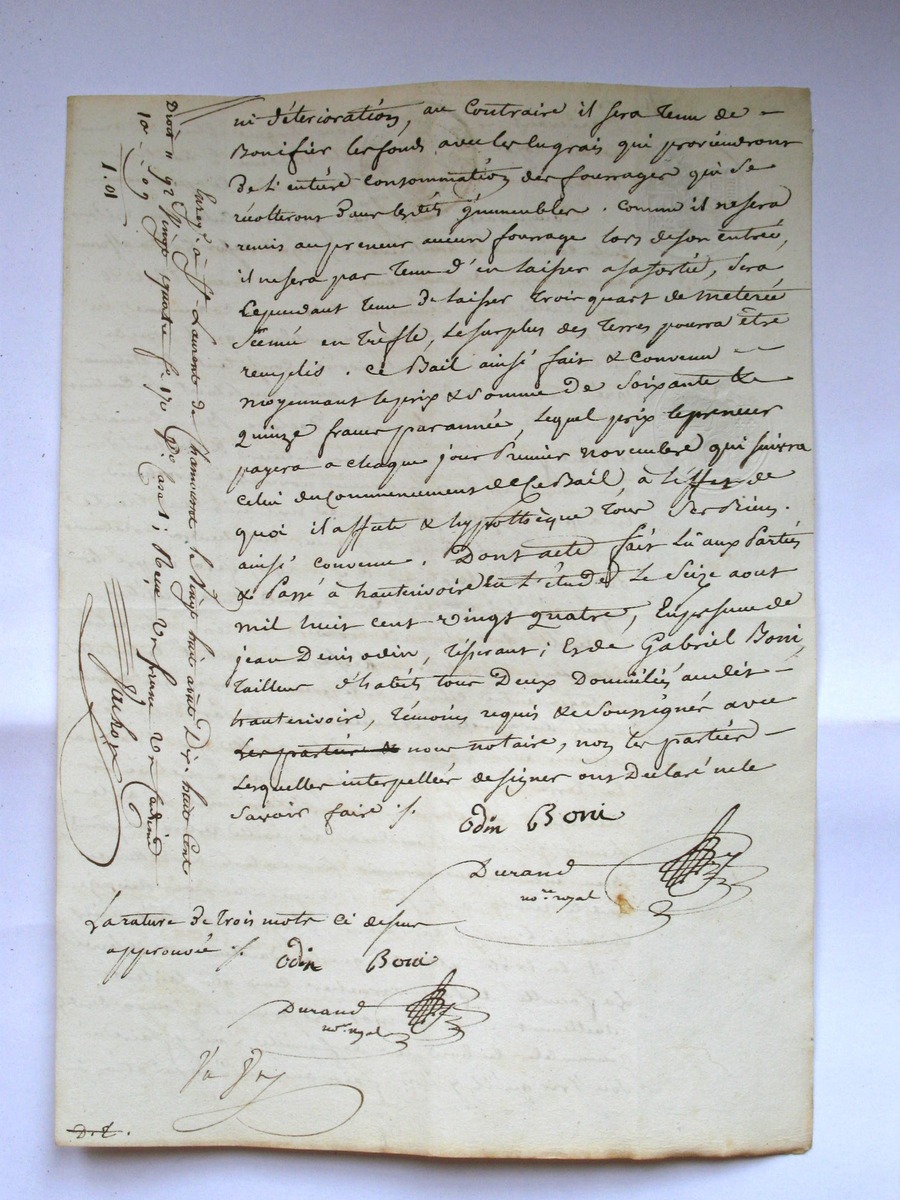 ni déterioration, au Contraire il sera tenu de
Bonifier les fonds avec les Engrais qui proviendront
de l'entiere Consommation des fourrages qui se
récolteront dans lesdits immeubles. Comme il ne sera
remis au preneur aucun fourrage lors de son entrée,
il ne sera pas tenu d'en laisser a sa sortie, Sera
Cependant tenu de laisser trois quart de meterée
Semé en Trefle, Le surplus des Terres pourra être
remplis. Ce Bail ainsi fait & Convenu
moyennant le prix & somme de Soixante &
Quinze francs par année, lequel prix le preneur
payera a chaque jour Premier novembre qui suivra
celui du Commencement de Ce Bail, à l'effet de
quoi il affecte & hypothèque tous ses Biens.
ainsi convenu. Dont acte fait Lû aux Parties
& Passé à hauterivoire En l'étude Le Seize aout
mil huit cent vingt quatre, En presence de
jean Denis odin, & de Gabriel Boni
Tailleur d'habits tous Deux Domiciliés audit
hauterivoire, témoins requis & Soussignés avec
Les parties & nous notaire, non les parties
Lesquelles interpellées de signer ont Déclaré ne le
Savoir faire ./.
Odin Boni
Durand
no.re royal
La rature de trois mots Ci dessus
approuvée ./.
Odin Boni
Durand
no.re royal
D. T.
Enreg.é à St. Laurent de Chamousset le Vingt huit août Dix huit Cent
Vingt quatre fo 170
Reçu Un franc Un Centime
10 - 09
1. 01